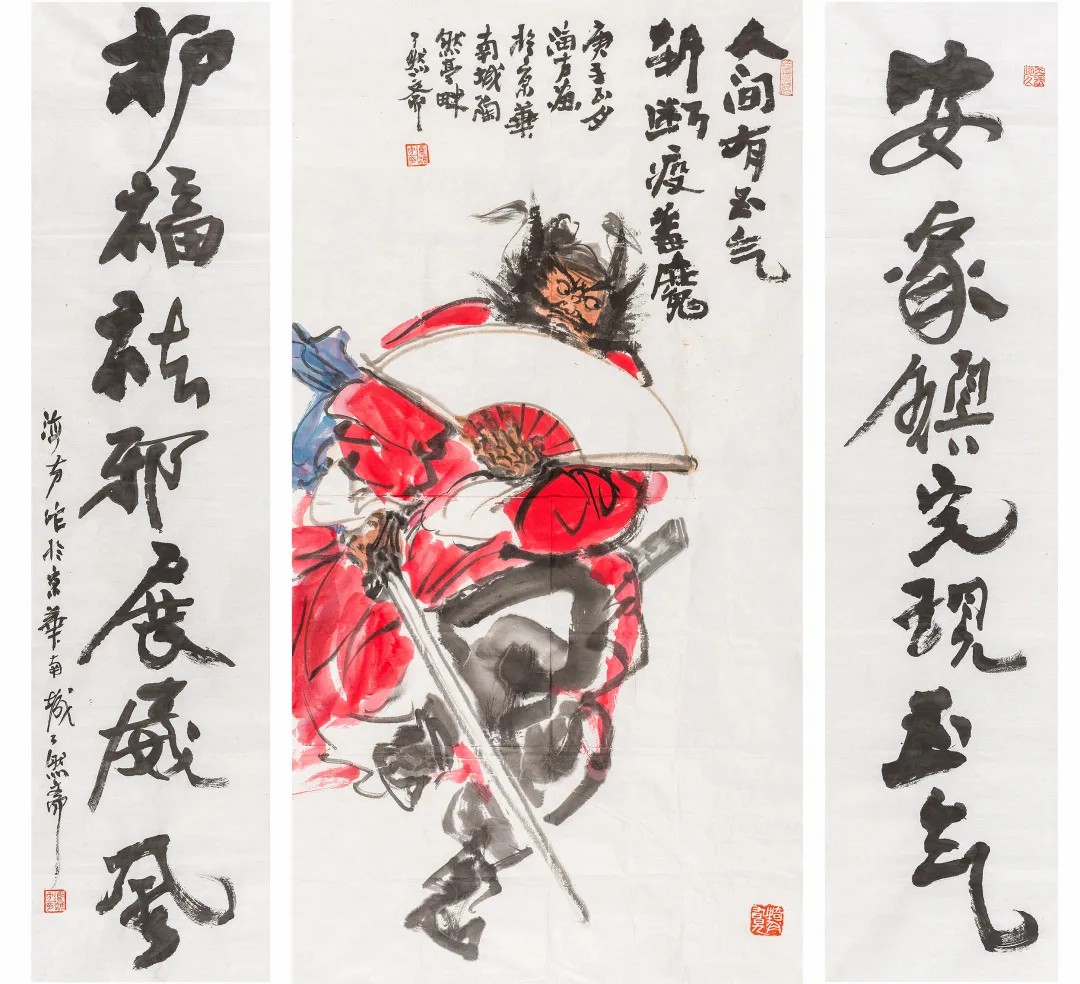 安家鎮宅现正气
人间有正气
斩断疫毒魔
庚子
海方画
於京華
南城陶
然亭畔
了然斋
护福祛邪展威風
海方作於京華南城了然斋